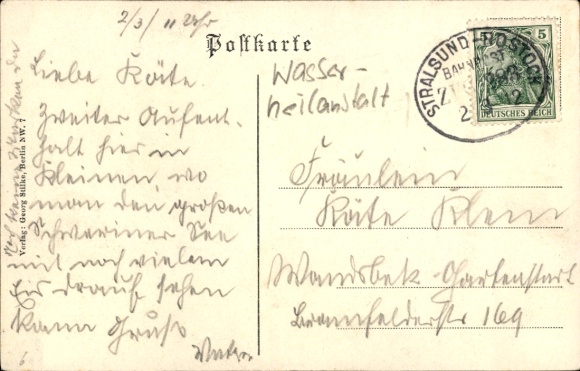 2/3/ 11 Uhr
Postkarte
Liebe Käte
Zweiter Aufent-
halt hier in
Kleinen wo
man den großen
Schweriner See
mit noch vielem
Eis drauf sehen
kann Gruß
Wasser-
heilanstalt
Fräulein
Käte Klein
Wandsbek-Gartenstadt
Bramfelderstr 169
STRALSUND-ROSTOCK
BAHNPOST
5
DEUTSCHES REICH
Verlag: Georg Stilke, Berlin NW. 7